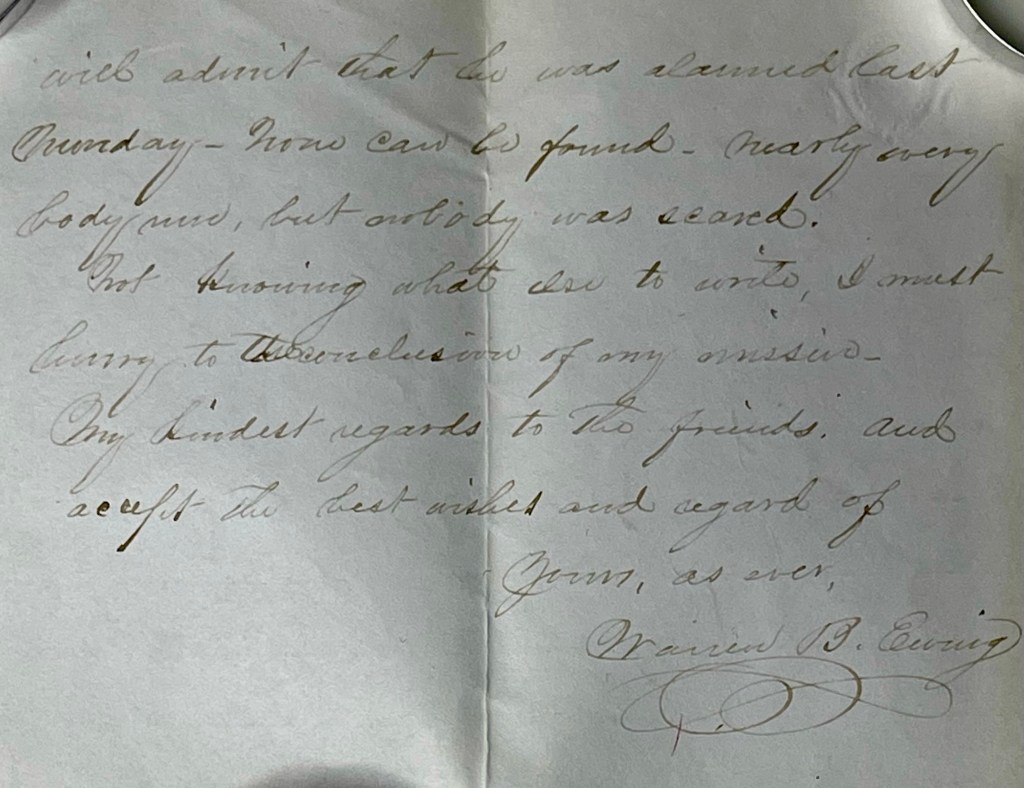 will admit that he was alarmed last
Munday - None can be found - nearly every
body run, but nobody was scared.
Not knowing what else to write, I must
hurry to the conclusion of my missive -
My kindest regards to the friends. and
accept the best wishes and regard of
Yours, as ever,
Warren B. Ewing